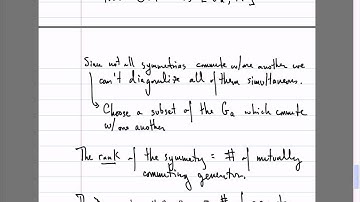 Since not all symmetries commute w/one another we
can't diagonalize all of them simultaneous.
Choose a subset of the Ga which commute
w/one another
The rank of the symmetry = # of mutually
commuting generators.